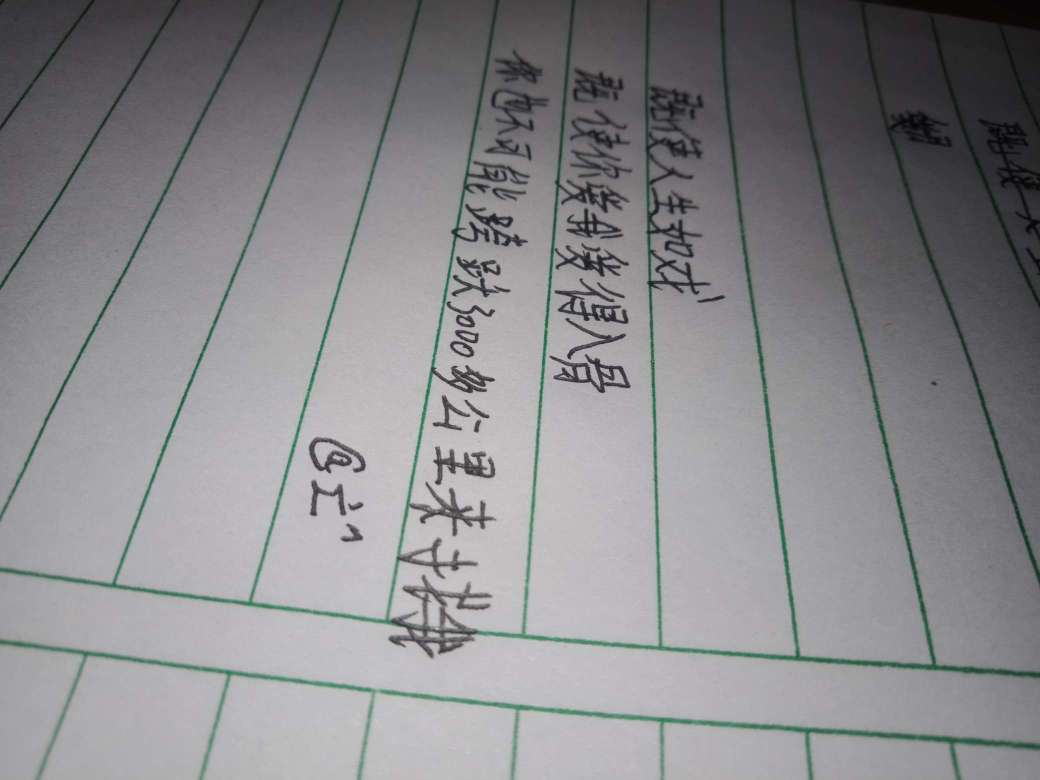 既使人生如戏
既使你爱我爱得入骨
你也不可能跨跃3000多公里来